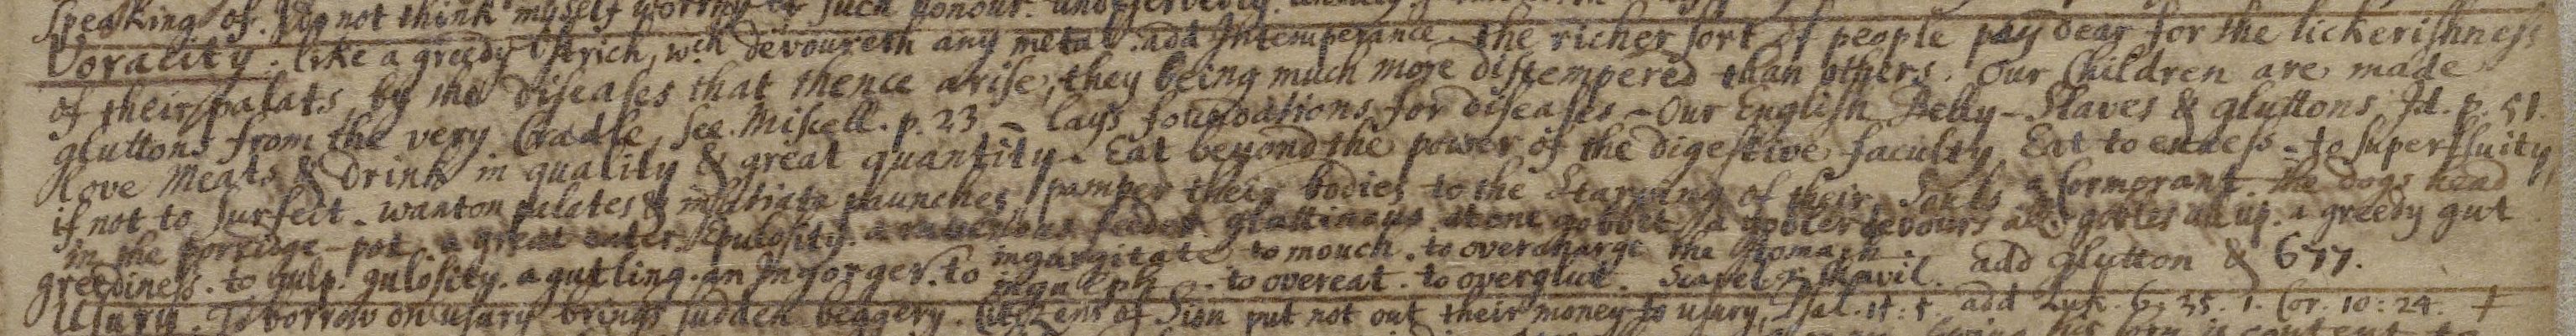 speaking of. Do not think myself worthy of such honour. undeservedly.
Voracity. like a greedy Ostrich, wch devoureth any metal. add Intemperance. The richer sort of people pay dear for the lickerishness
of their palats, by the diseases that thence arise, they being much more distempered than others. Our Children are made
gluttons from the very Cradle, see. Miscell. p. 23 - lays foundations for diseases - Our English Belly-Slaves & gluttons Id. p. 51.
Love Meats & Drink in quality & great quantity. Eat beyond the power of the digestive faculty. Eat to excess - to superfluity,
if not to surfeit. wanton palates & insatiate paunches pamper their bodies to the starving of their Souls a Cormorant. The dogs head
in the porridge-pot. a great eater. Epulosity. a ravenous feeder gluttinous. at one gobbet. a gobler devours all. gobles all up. a greedy gut
greediness. to gulp. gulosity. a gutling. an Ingorger. to ingurgitate to mouch. to overcharge the stomach.
inguelph. to overeat. to overglut. add glutton & 677.
Usury. To borrow on usury brings sudden beggery. Citizens of Sion put not out their money to usury, Psal. 15: 5. add Luk. 6: 35. 1. Cor. 10: 24. +